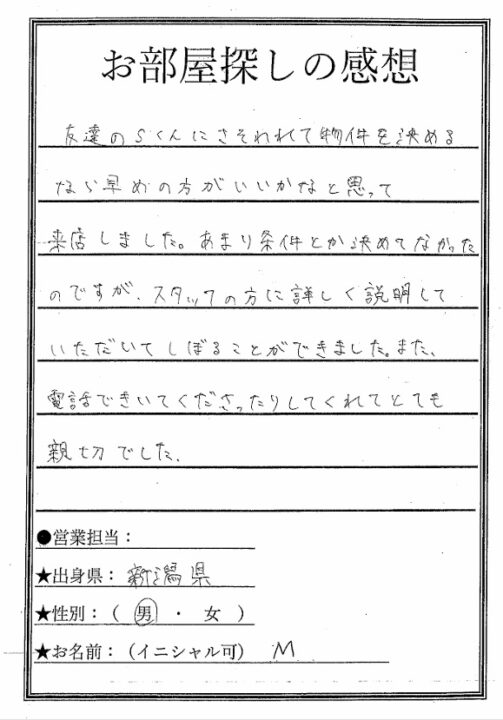 お部屋探しの感想
友達のSくんにさそわれて物件を決める
なら早めの方がいいかなと思って
来店しました。あまり条件とか決めてなかった
のですが、スタッフの方に詳しく説明して
いただいてしぼることができました。また、
電話できいてくださったりしてくれてとても
親切でした。
●営業担当：
★出身県：新潟県
★性別：（ 男 ・ 女 ）
★お名前：（イニシャル可） M